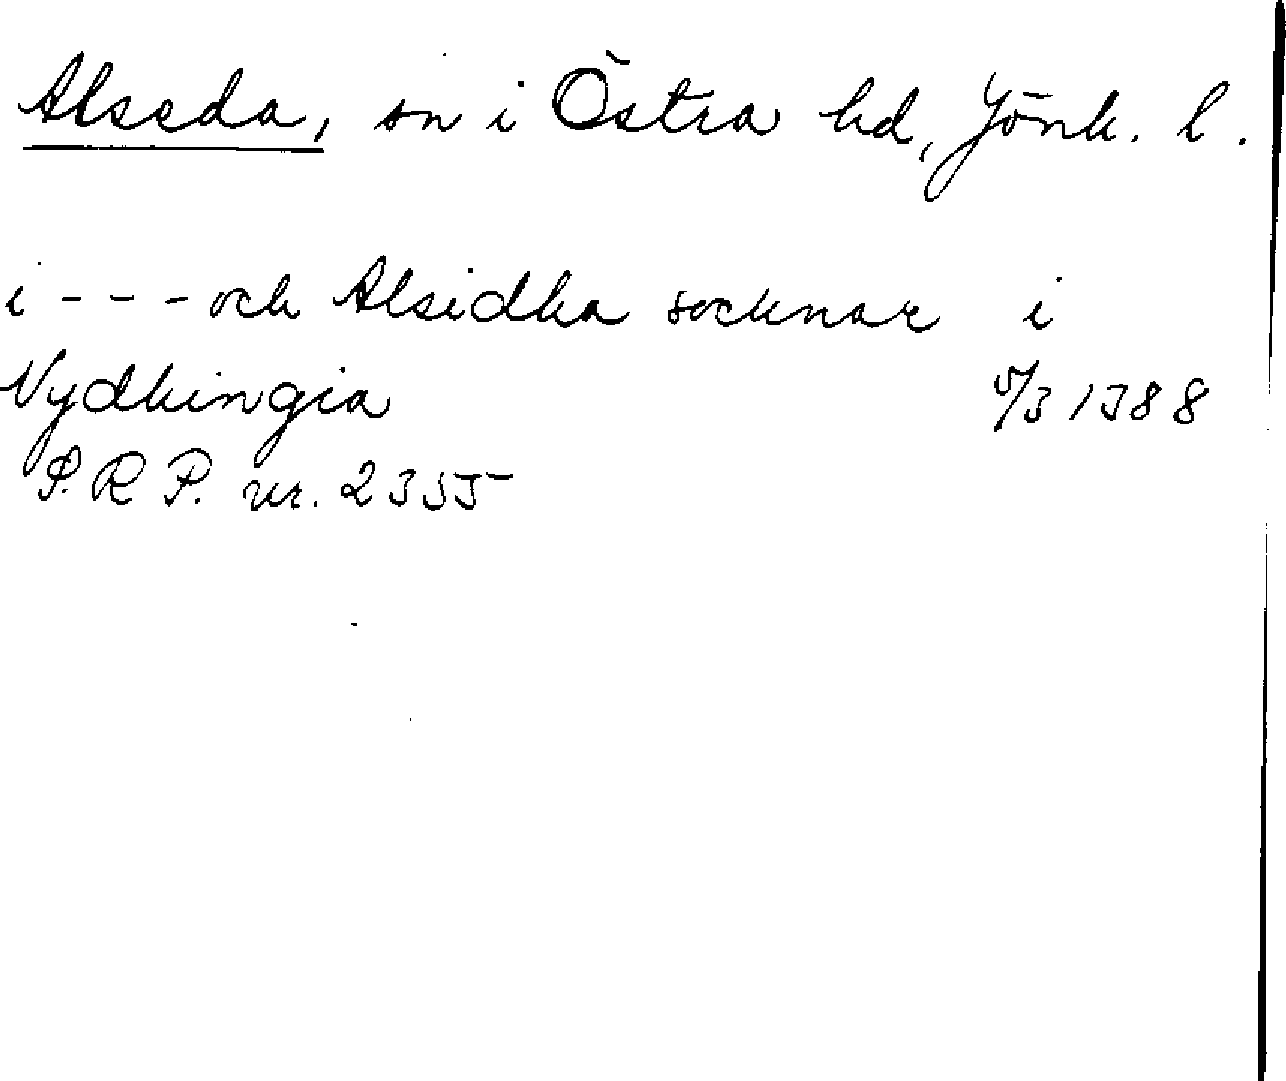 Alseda, sn i Östra hd, Jönk. l.
i - - - och Alsidha socknar i
Nydhingia 5/3 1388
S.R P. nr. 2355